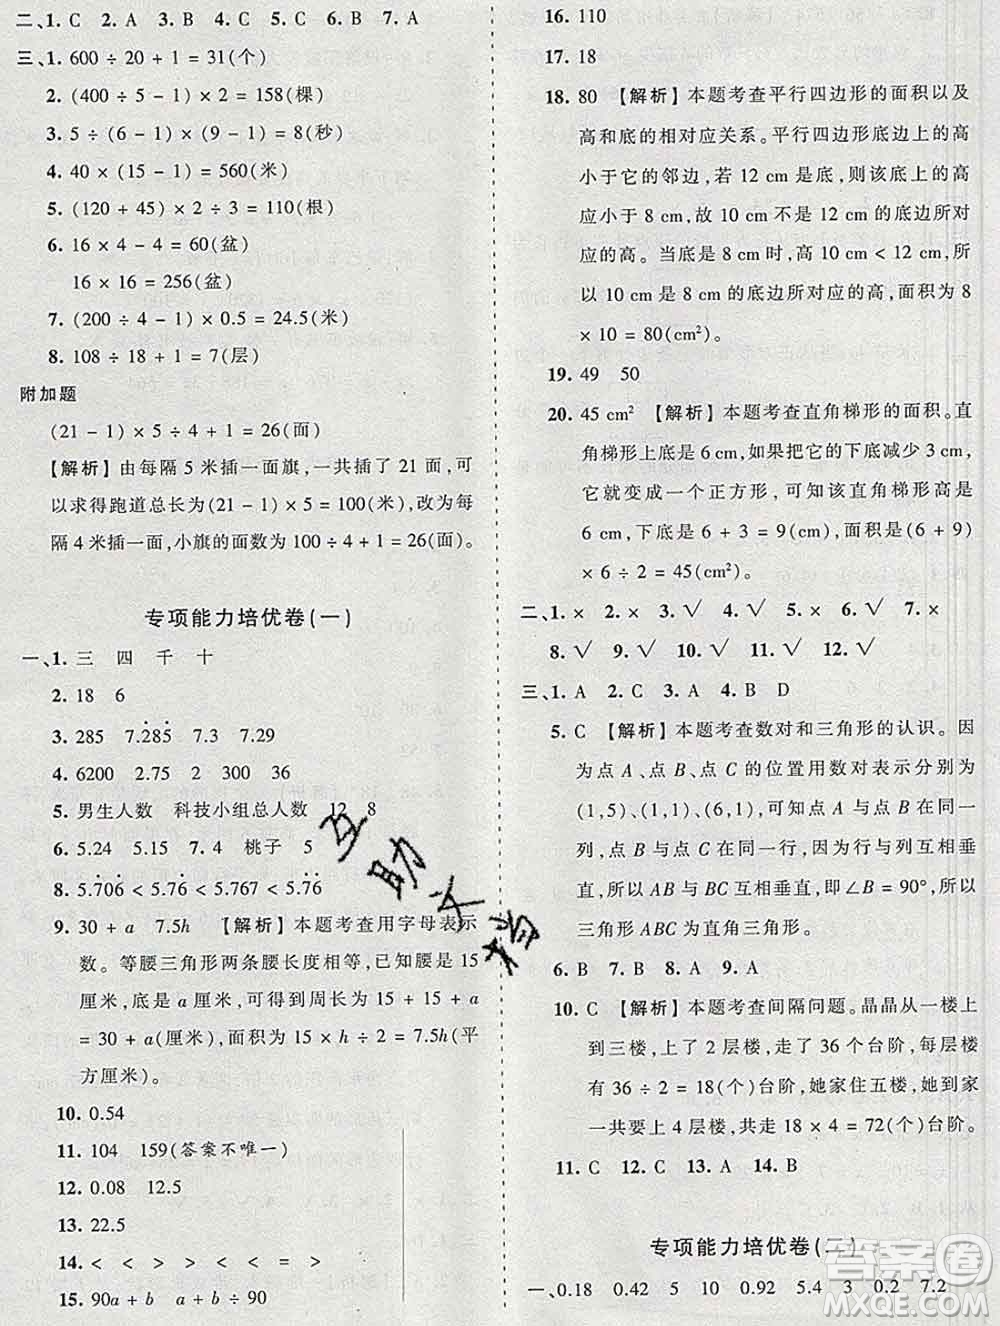 二、1. C  2. A  3. B  4. C  5. C  6. B  7. A
三、1. 600 ÷ 20 + 1 = 31(个)
2. (400 ÷ 5 - 1) × 2 = 158(棵)
3. 5 ÷ (6 - 1) × (9 - 1) = 8(秒)
4. 40 × (15 - 1) = 560(米)
5. (120 + 45) × 2 ÷ 3 = 110(根)
6. 16 × 4 - 4 = 60(盆)
16 × 16 = 256(盆)
7. (200 ÷ 4 - 1) × 0.5 = 24.5(米)
8. 108 ÷ 18 + 1 = 7(层)
附加题
(21 - 1) × 5 ÷ 4 + 1 = 26(面)
【解析】由每隔 5 米插一面旗,一共插了 21 面,可
以求得跑道总长为(21 - 1) × 5 = 100(米),改为每
隔 4 米插一面,小旗的面数为 100 ÷ 4 + 1 = 26(面)。
专项能力培优卷(一)
一、1. 三  四  千  十
2. 18  6
3. 285  7.2̇85̇  7.3  7.29
4. 6200  2.75  2  300  36
5. 男生人数  科技小组总人数  12  8
6. 5.24  5.15  7. 4  桃子  5
8. 5.7̇06̇ < 5.7̇6̇ < 5.767 < 5.76̇
9. 30 + a  7.5h  【解析】本题考查用字母表示
数。等腰三角形两条腰长度相等,已知腰是 15
厘米,底是 a 厘米,可得到周长为 15 + 15 + a
= 30 + a(厘米),面积为 15 × h ÷ 2 = 7.5h(平
方厘米)。
10. 0.54
11. 104  159(答案不唯一)
12. 0.08  12.5
13. 22.5
14. <  <  <  =  >  >
15. 90a + b  a ÷ 90 + b
16. 110
17. 18
18. 80  【解析】本题考查平行四边形的面积以及
高和底的相对应关系。平行四边形底边上的高
小于它的邻边,若 12 cm 是底,则该底上的高
应小于 8 cm,故 10 cm 不是 12 cm 的底边所对
应的高。当底边是 8 cm 时,高 10 cm < 12 cm,所
以 10 cm 是 8 cm 的底边所对应的高,面积为 8
× 10 = 80(cm²)。
19. 49  50
20. 45 cm²  【解析】本题考查直角梯形的面积。直
角梯形上底是 6 cm,如果把它的下底减少 3 cm,
它就变成一个正方形,可知该直角梯形高是
6 cm,下底是 6 + 3 = 9(cm),面积是(6 + 9)
× 6 ÷ 2 = 45(cm²)。
二、1. ×  2. ×  3. √  4. √  5. ×  6. √  7. ×
8. √  9. ×  10. √  11. √  12. √
三、1. A  2. C  3. A  4. B  D
5. C  【解析】本题考查数对和三角形的认识。因
为点 A、点 B、点 C 的位置用数对表示分别为
(1,5),(1,1),(6,1),可知点 A 与点 B 在同一
列,点 B 与点 C 在同一行,因为行与列互相垂
直,所以 AB 与 BC 互相垂直,即∠B = 90°,所
以三角形 ABC 为直角三角形。
6. B  7. B  8. A  9. A
10. C  【解析】本题考查间隔问题。晶晶从一楼上
到三楼,上了 2 层楼,走了 36 个台阶,每层楼
有 36 ÷ 2 = 18(个)台阶,她家住五楼,她到家
一共要上 4 层楼,共走 18 × 4 = 72(个)台阶。
11. C  12. C  13. A  14. B
专项能力培优卷(二)
一、0.18  0.42  5  10  0.92  5.4  3  0.2  7.2
互助文档
答案圈
MXQE.COM